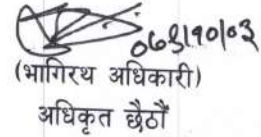 ०६३।१०।०३
(भागिरथ अधिकारी)
अधिकृत छैठौं